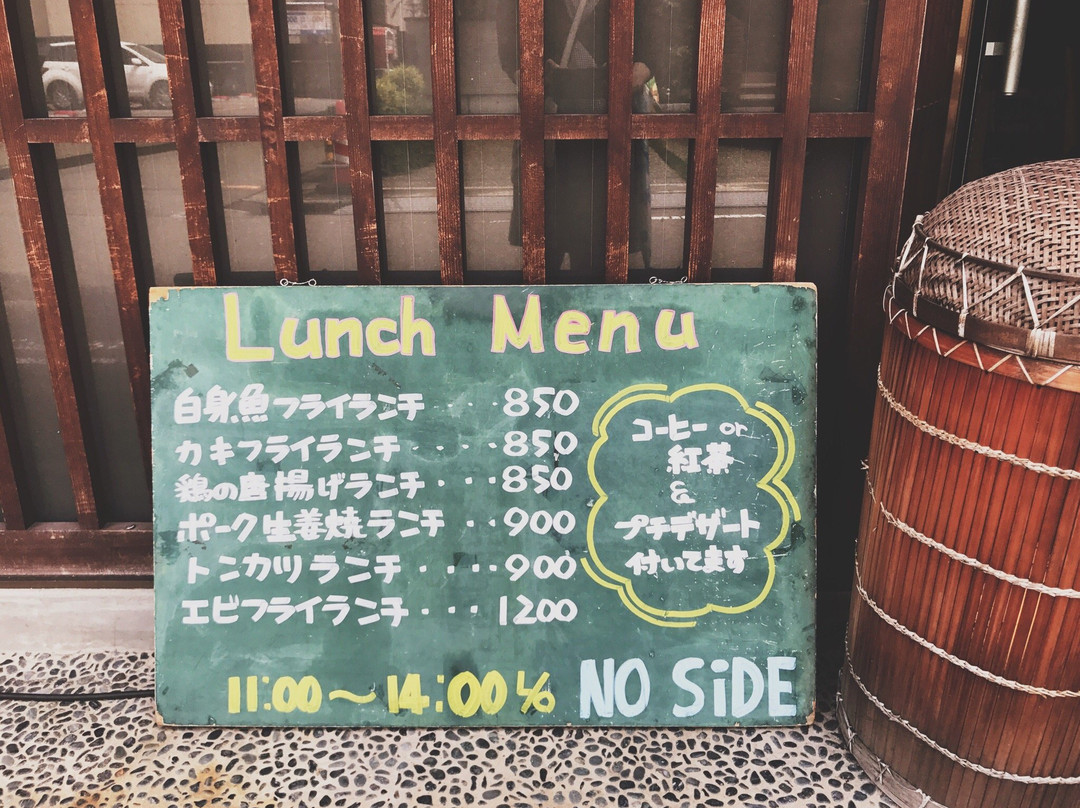 Lunch Menu
白身魚フライランチ ・・・・850
カキフライランチ・・・・850
鶏の唐揚げランチ・・・850
ポーク生姜焼ランチ・・900
トンカツランチ・・・・900
エビフライランチ・・・1200
コーヒー or
紅茶
&
プチデザート
付いてます
11:00〜14:00 %
NO SiDE